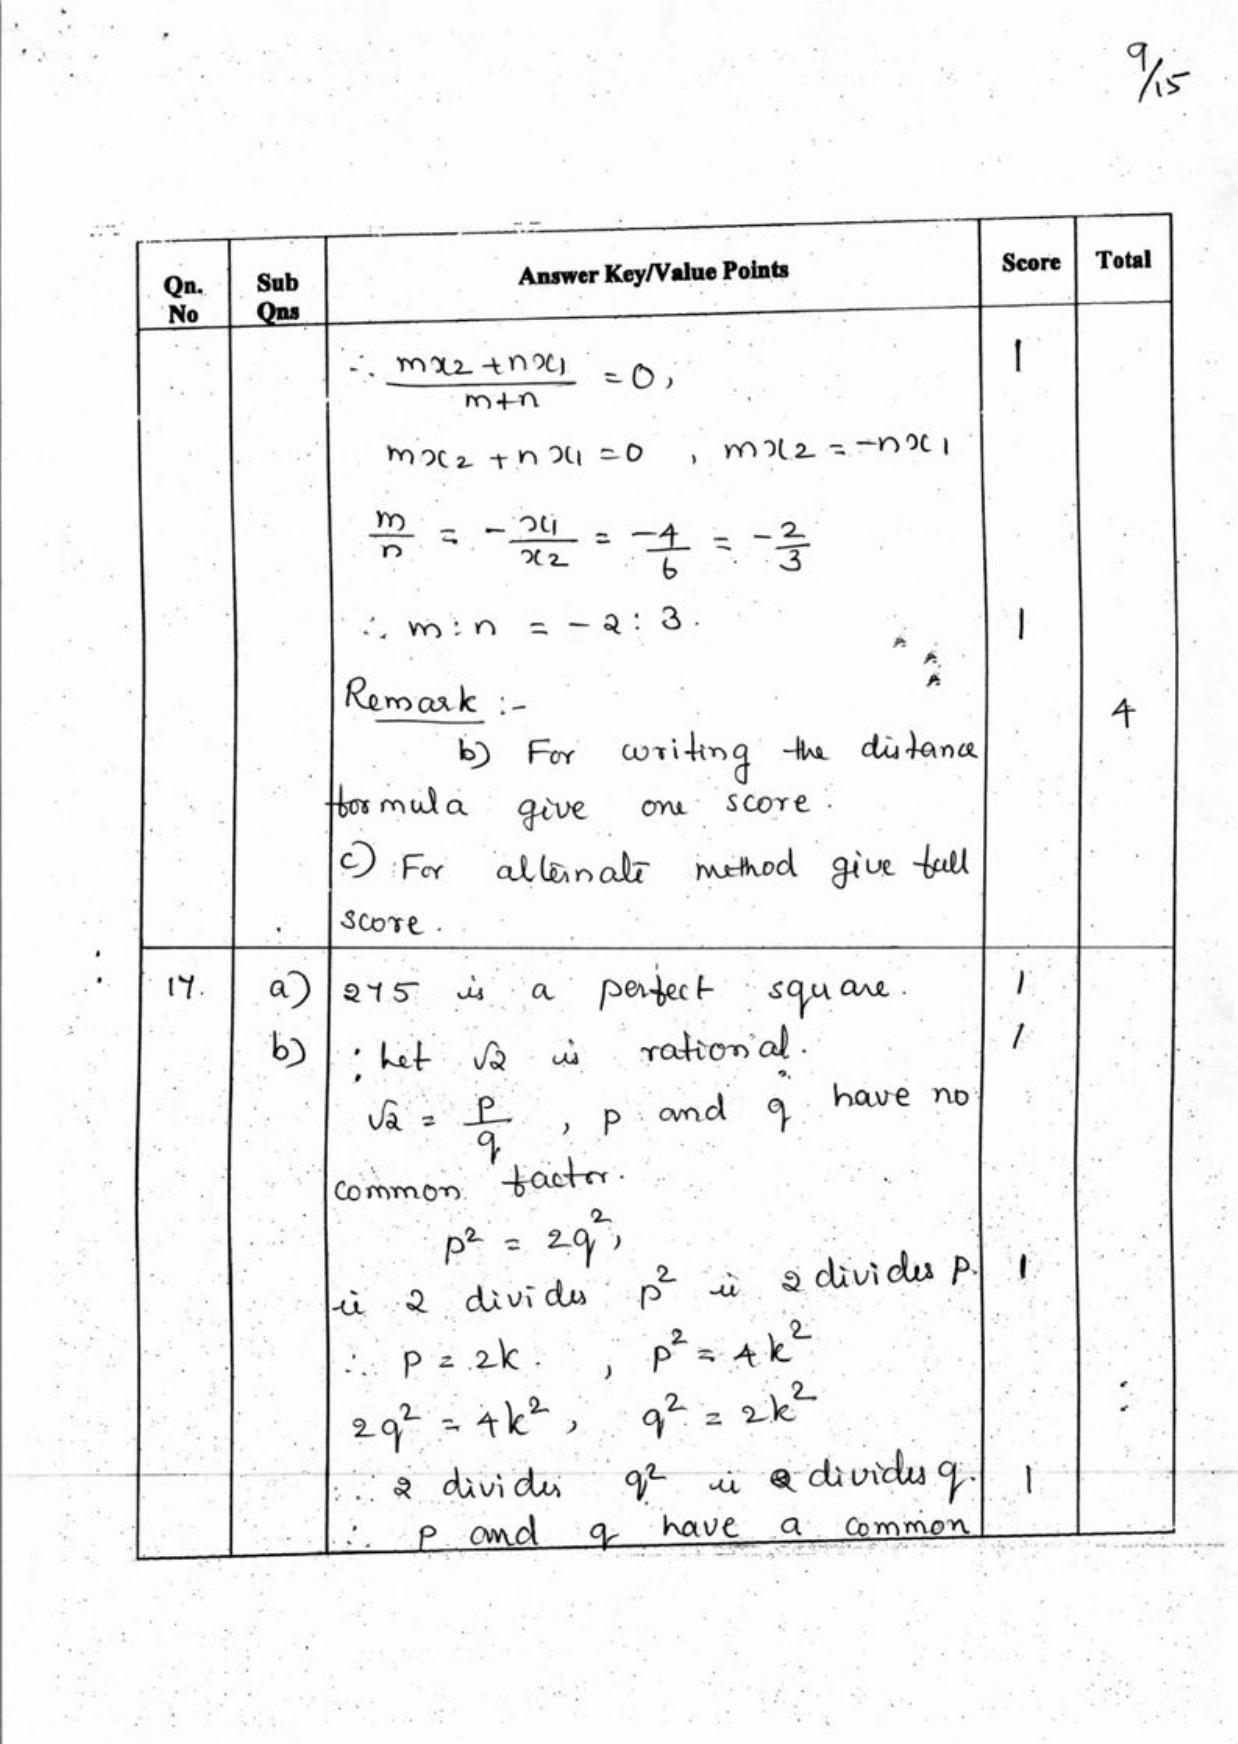 9/15
Qn. No Sub Qns Answer Key/Value Points Score Total
∴ mx2 + nx1 / m+n = 0, 1
mx2 + nx1 = 0 , mx2 = -nx1
m/n = - x1/x2 = -4/6 = -2/3
∴ m:n = -2:3. 1
Remark :- 4
b) For writing the distance
formula give one score.
c) For alternate method give full
score.
17. a) 275 is a perfect square. 1
b) : Let √2 is rational. 1
√2 = p/q , p and q have no
common factor.
p² = 2q²,
ie 2 divides p² ie 2 divides p. 1
∴ p = 2k. , p² = 4k²
2q² = 4k² , q² = 2k²
∴ 2 divides q² ie 2 divides q. 1
∴ p and q have a common